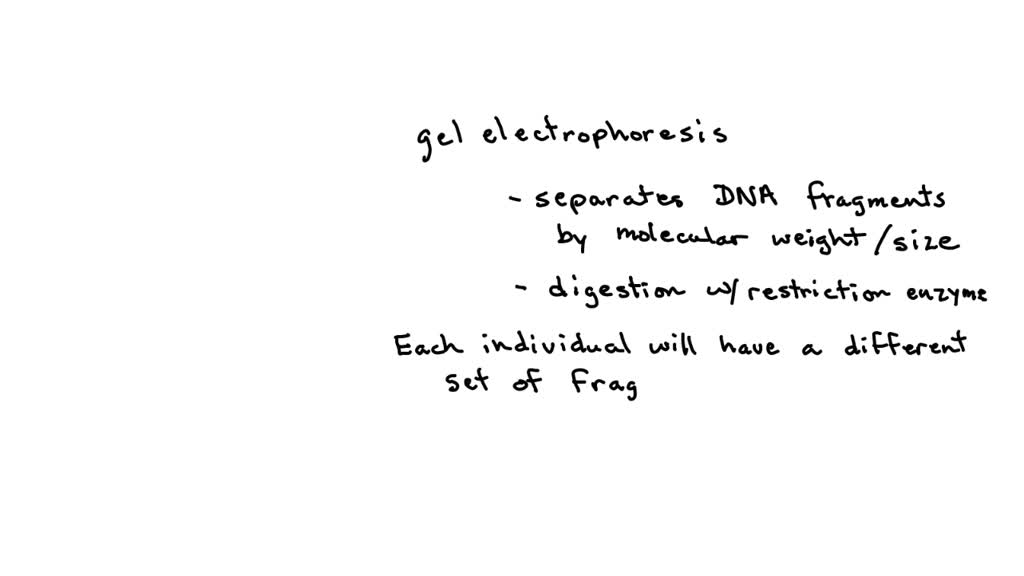 gel electrophoresis
- separates DNA fragments
by molecular weight/size
- digestion w/restriction enzyme
Each individual will have a different
set of frag